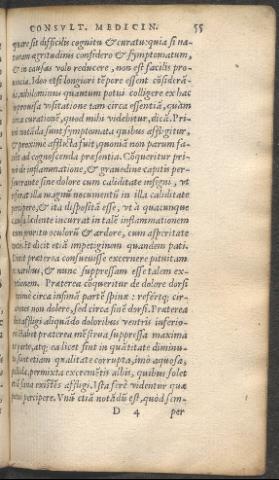 CONSVLT. MEDICIN. 55
quare sit difficilis cognitu & curatu: quia si na-
turam ægritudinis considero & symptomatum,
& in causas volo reducere, non est facilis pro-
uincia. Ideo etsi longiori tēpore essent cōsiderā-
, nihilominus quantum potui colligere ex hac
propensa visitatione tam circa essentiā, quàm
circa curationē, quod mihi videbitur, dicā. Pri-
notāda sunt symptomata quibus affligitur,
& proximè afflicta fuit, quoniā non parum fa-
ad cognoscenda præsentia. Cōqueritur pri-
de inflammatione, & grauedine capitis per-
seuerante sine dolore cum caliditate insigni, vt
illa magnū nocumentū in illa caliditate
, & ita dispositā esse, vt à quacunque
incurrat in talē inflammationem
cum pruritu oculorū & ardore, cum asperitate
dicit etiā impetiginem quandem pati.
præterea consueuisse excernere pituitam
naribus, & nunc suppressam esse talem ex-
. Præterea cōqueritur de dolore dorsi
circa infimā partē spinæ: refertq; cir-
non dolere, sed circa finē dorsi. Præterea
affligi aliquādo doloribus ventris inferio-
præterea mēstrua suppressa maxima
parte, atq; ea licet sint in quātitate diminu-
sunt etiam qualitate corrupta, imò aquosa,
pallida, permixta excremētis albis, quibus solet
existēs affligi. Ista ferè videntur quæ
percipere. Vnū etiā notādū est, quòd sem-
D 4 per